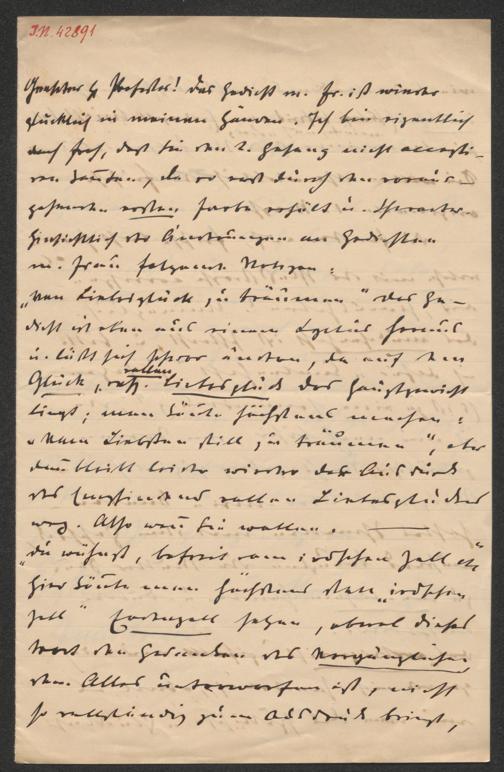 I.N. 42891
Geehrter H Professor! Das Gedicht m. Fr. ist wieder
glücklich in meinen Händen. Ich bin eigentlich
doch froh, daß Sie den 2. Gesang nicht accepti-
ren konnten, da er erst durch den voraus-
gehenden ersten Farbe erhält u. Character.
Hinsichtlich der Änderungen an Gedichten
m. Frau folgende Notizen:
„Von Liebesglück zu träumen" Das Ge-
dicht ist eben aus einem Cyclus heraus
u. läßt sich schwer ändern, da auf dem
Glück, resp. vollen Liebesglück das Hauptgewicht
liegt; man könnte höchstens machen:
„Vom Liebsten still zu träumen", aber
dann bleibt leider wieder der Ausdruck
des Empfindens vollen Liebesglückes
weg. Also wenn Sie wollen.
„Du wähnst, befreit vom ird'schen Zoll etc"
Hier könnte man höchstens statt „ird'schen
Zoll" setzen, obwol dieses
Wort den Gedanken des Vergänglichen,
dem Alles unterworfen ist, nicht
so vollständig zum Ausdruck bringt,